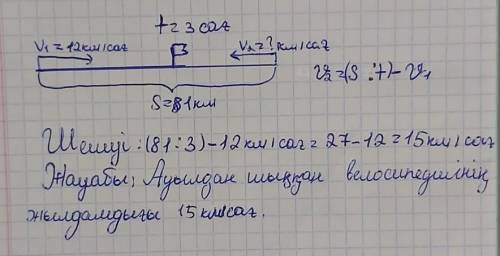 t = 3 сағ
V₁ = 12км/сағ V₂ = ? км/сағ
V₂ = (S : t) - V₁
S = 81км
Шешуі: (81 : 3) - 12км/сағ = 27 - 12 = 15км/сағ
Жауабы: Ауылдан шыққан велосипедшінің
жылдамдығы 15 км/сағ.